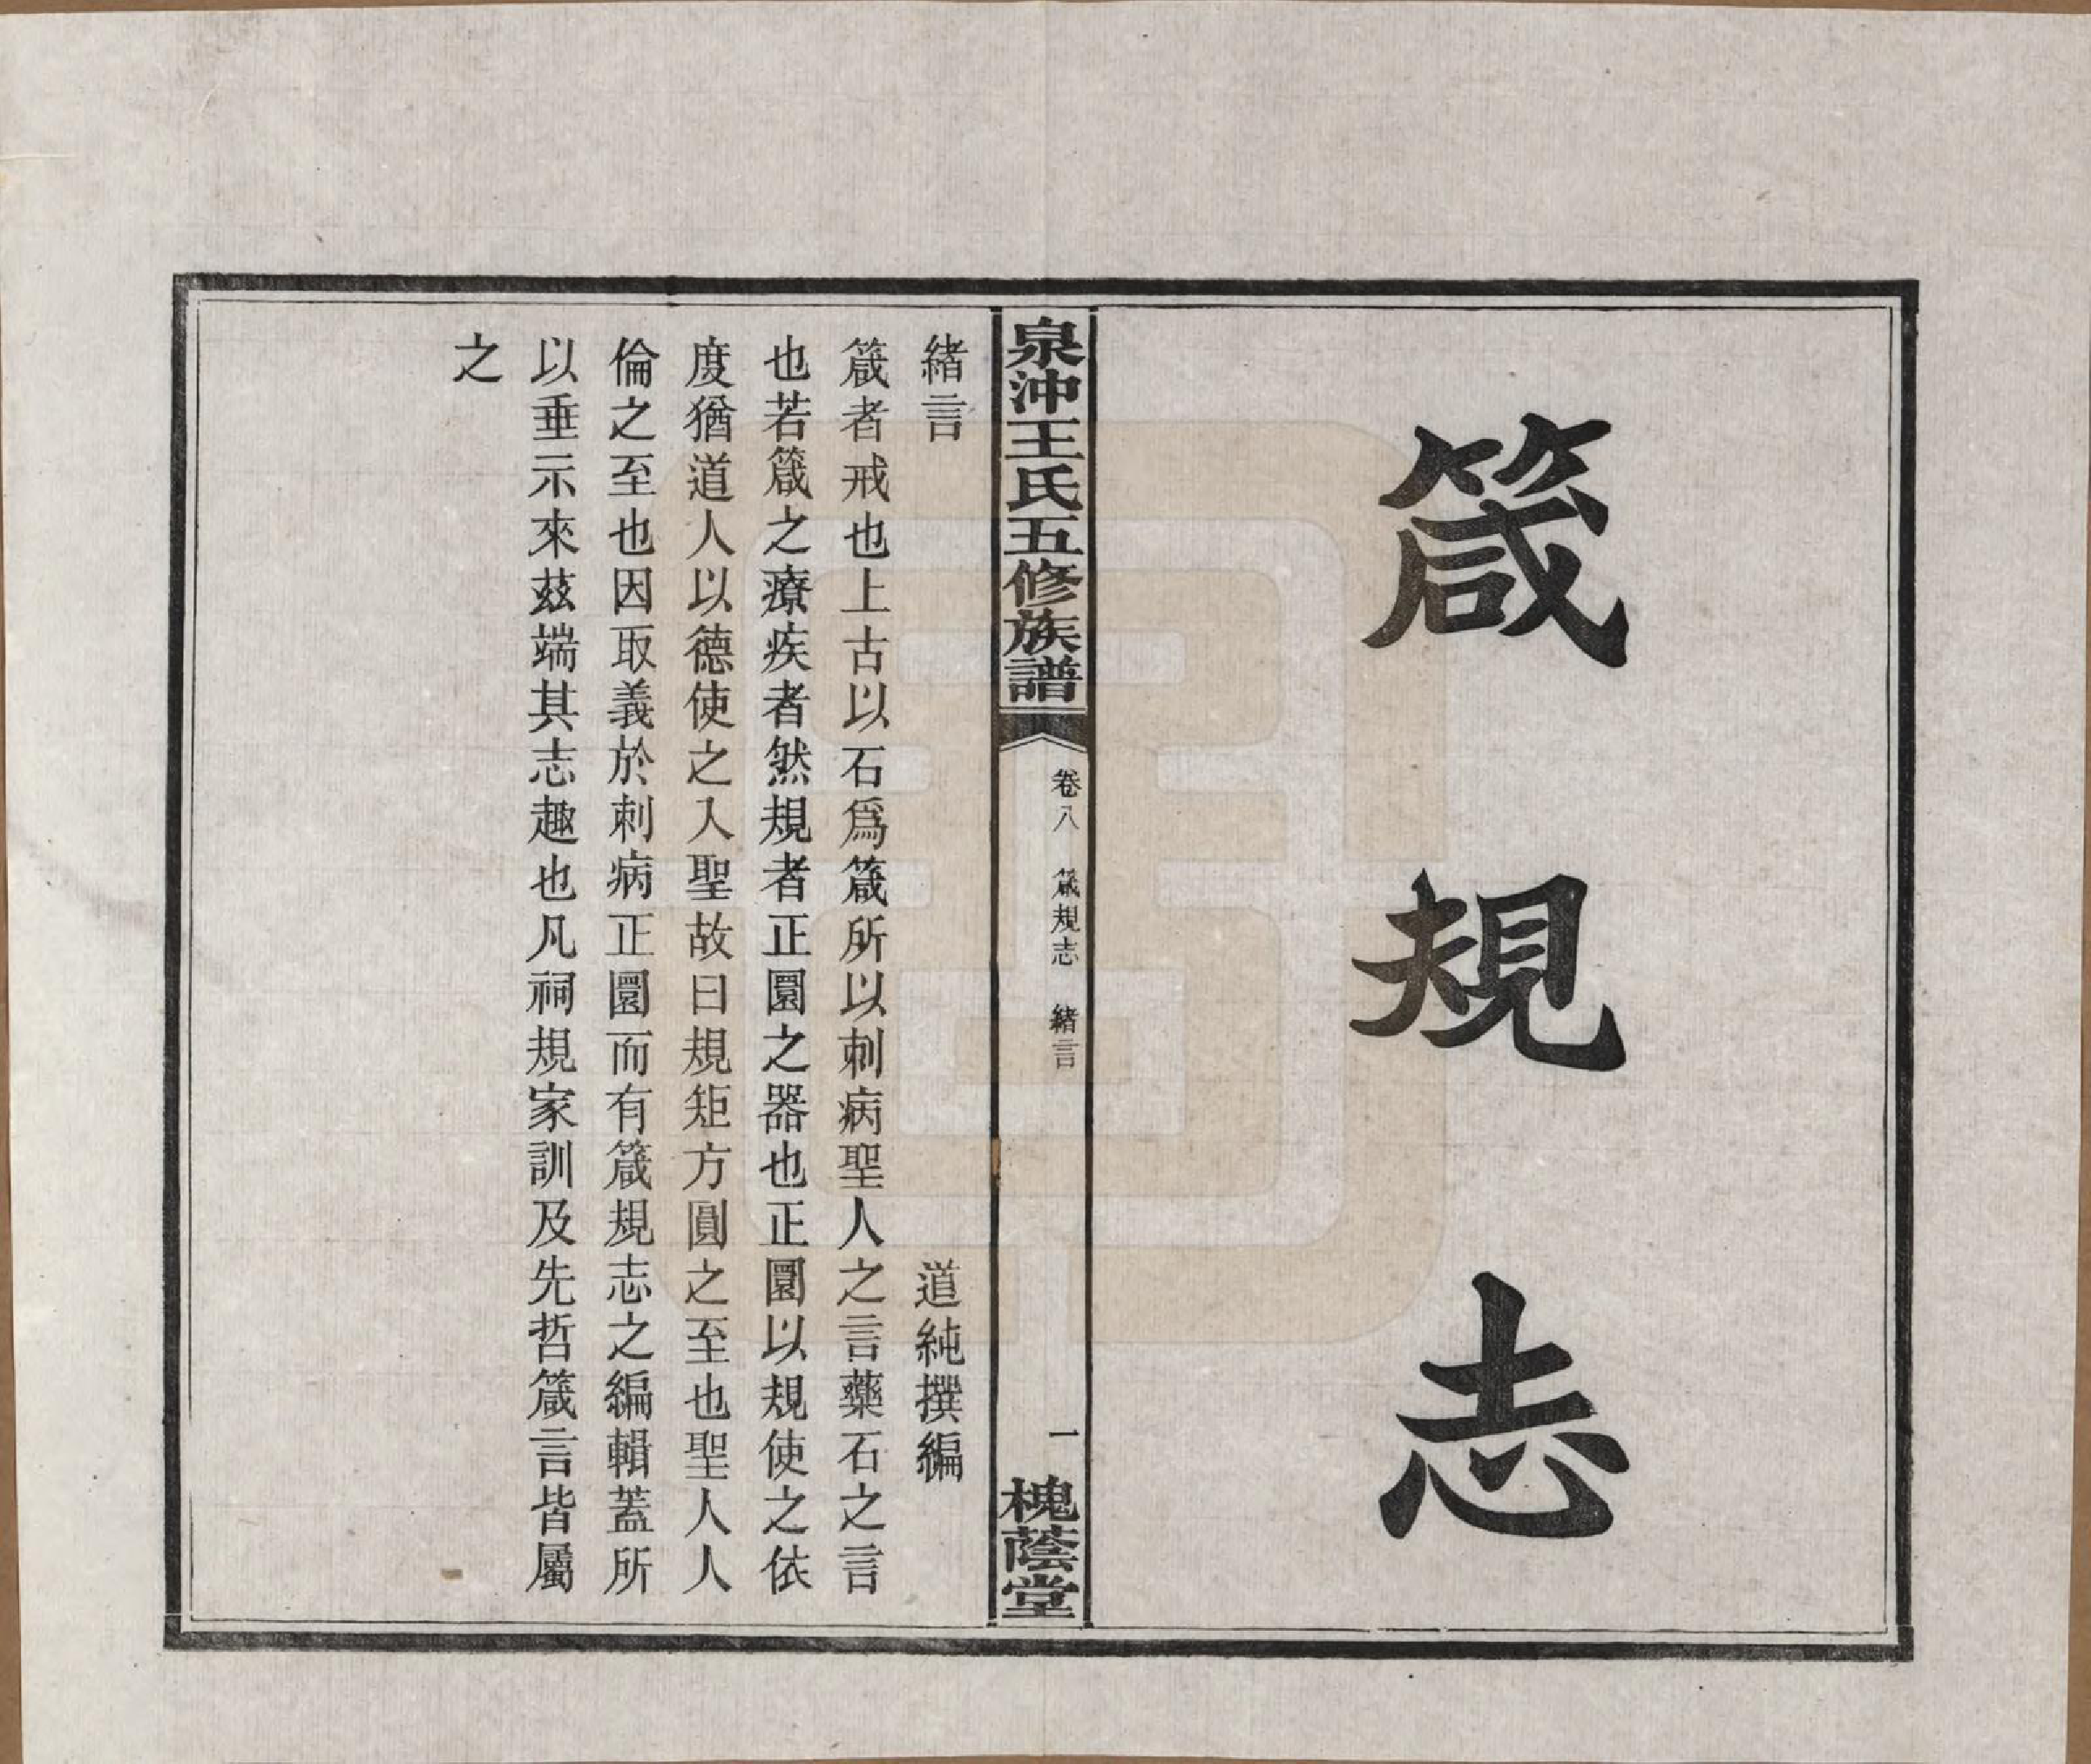 箴規志
泉沖王氏五修族譜
卷八 箴規志 緒言
一
槐蔭堂
緒言
道純撰編
箴者戒也上古以石爲箴所以刺病聖人之言藥石之言
也若箴之療疾者然規者正圜之器也正圜以規使之依
度猶道人以德使之入聖故曰規矩方圓之至也聖人人
倫之至也因取義於刺病正圜而有箴規志之編輯蓋所
以垂示來茲端其志趣也凡祠規家訓及先哲箴言皆屬
之